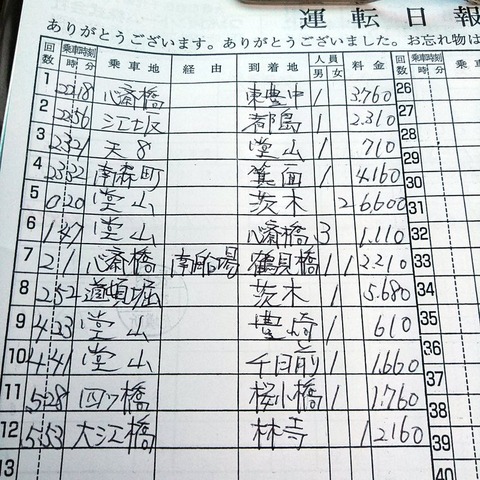 運転日報
ありがとうございます。ありがとうございました。お忘れ物は
回数 乗車時刻 時 分 乗車地 経由 到着地 人員 男 女 料金 回数 乗車時刻 時 分 乗車
1 22 18 心斎橋 東豊中 1 3.760 26
2 22 56 江坂 都島 1 2.310 27
3 23 21 天8 堂山 1 710 28
4 23 32 南森町 箕面 1 4160 29
5 0 20 堂山 茨木 2 6600 30
6 1 47 堂山 心斎橋 3 1.110 31
7 2 1 心斎橋 南船場 鶴見橋 1 1 2.210 32
8 2 52 道頓堀 茨木 1 5.680 33
9 4 23 堂山 豊崎 1 610 34
10 4 41 堂山 千日前 1 1.660 35
11 5 28 四ツ橋 桜小橋 1 1.760 36
12 5 53 大江橋 林寺 1 2160 37
13 38
39
40